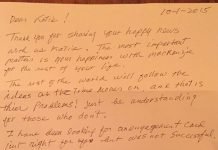 10-1-2015
Dear Katie!
Thank you for sharing your happy news
with us Katie. The most important
matter is your happiness with Mackenzie
for the rest of your life.
The rest of the world will follow the
ideas as the time moves on, and that is
their Problems! Just be understanding
for those who don't.
I have been looking for an engagement card
just right for you but was not successful.